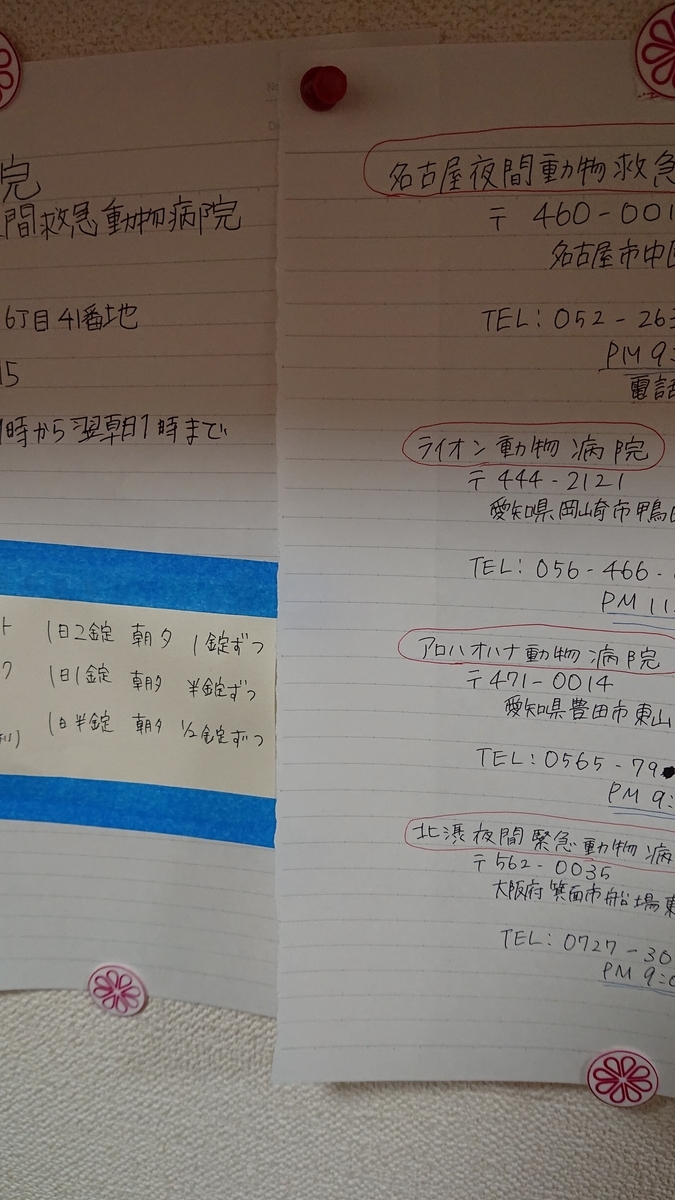 院
間救急動物病院
6丁目41番地
15
時から翌朝1時まで
ト 1日2錠 朝夕 1錠ずつ
ク 1日1錠 朝夕 半錠ずつ
1日半錠 朝夕 1/2錠ずつ
名古屋夜間動物救急
〒460-001
名古屋市中区
TEL:052-263
PM9:
電話
ライオン動物病院
〒444-2121
愛知県岡崎市鴨田
TEL:056-466-
PM11:
アロハオハナ動物病院
〒471-0014
愛知県豊田市東山
TEL:0565-79
PM9:
北 夜間緊急動物病
〒562-0035
大阪府箕面市船場東
TEL:0727-30
PM9:0